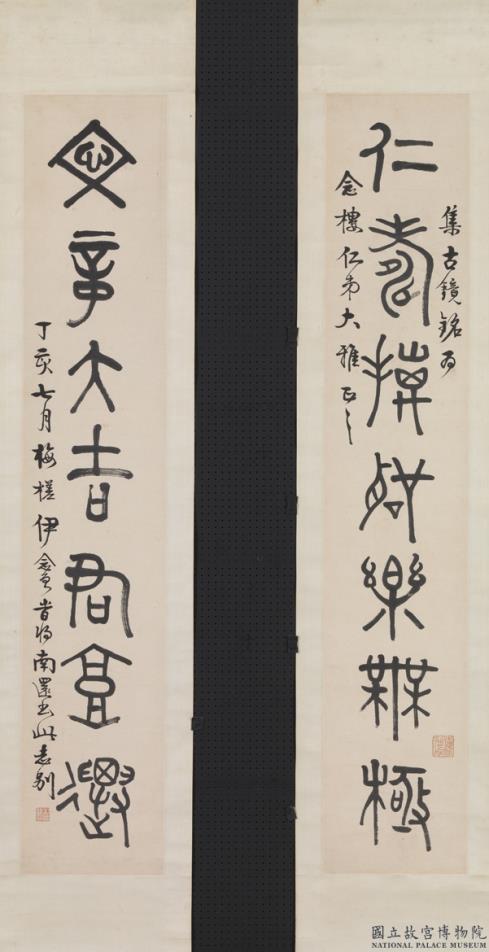 仁樂無極
集古鏡銘為
念樓仁弟大雅正之
大吉君宜
丁亥七月梅槎伊念曾旹將南還書此志別
國立故宮博物院
NATIONAL PALACE MUSEUM